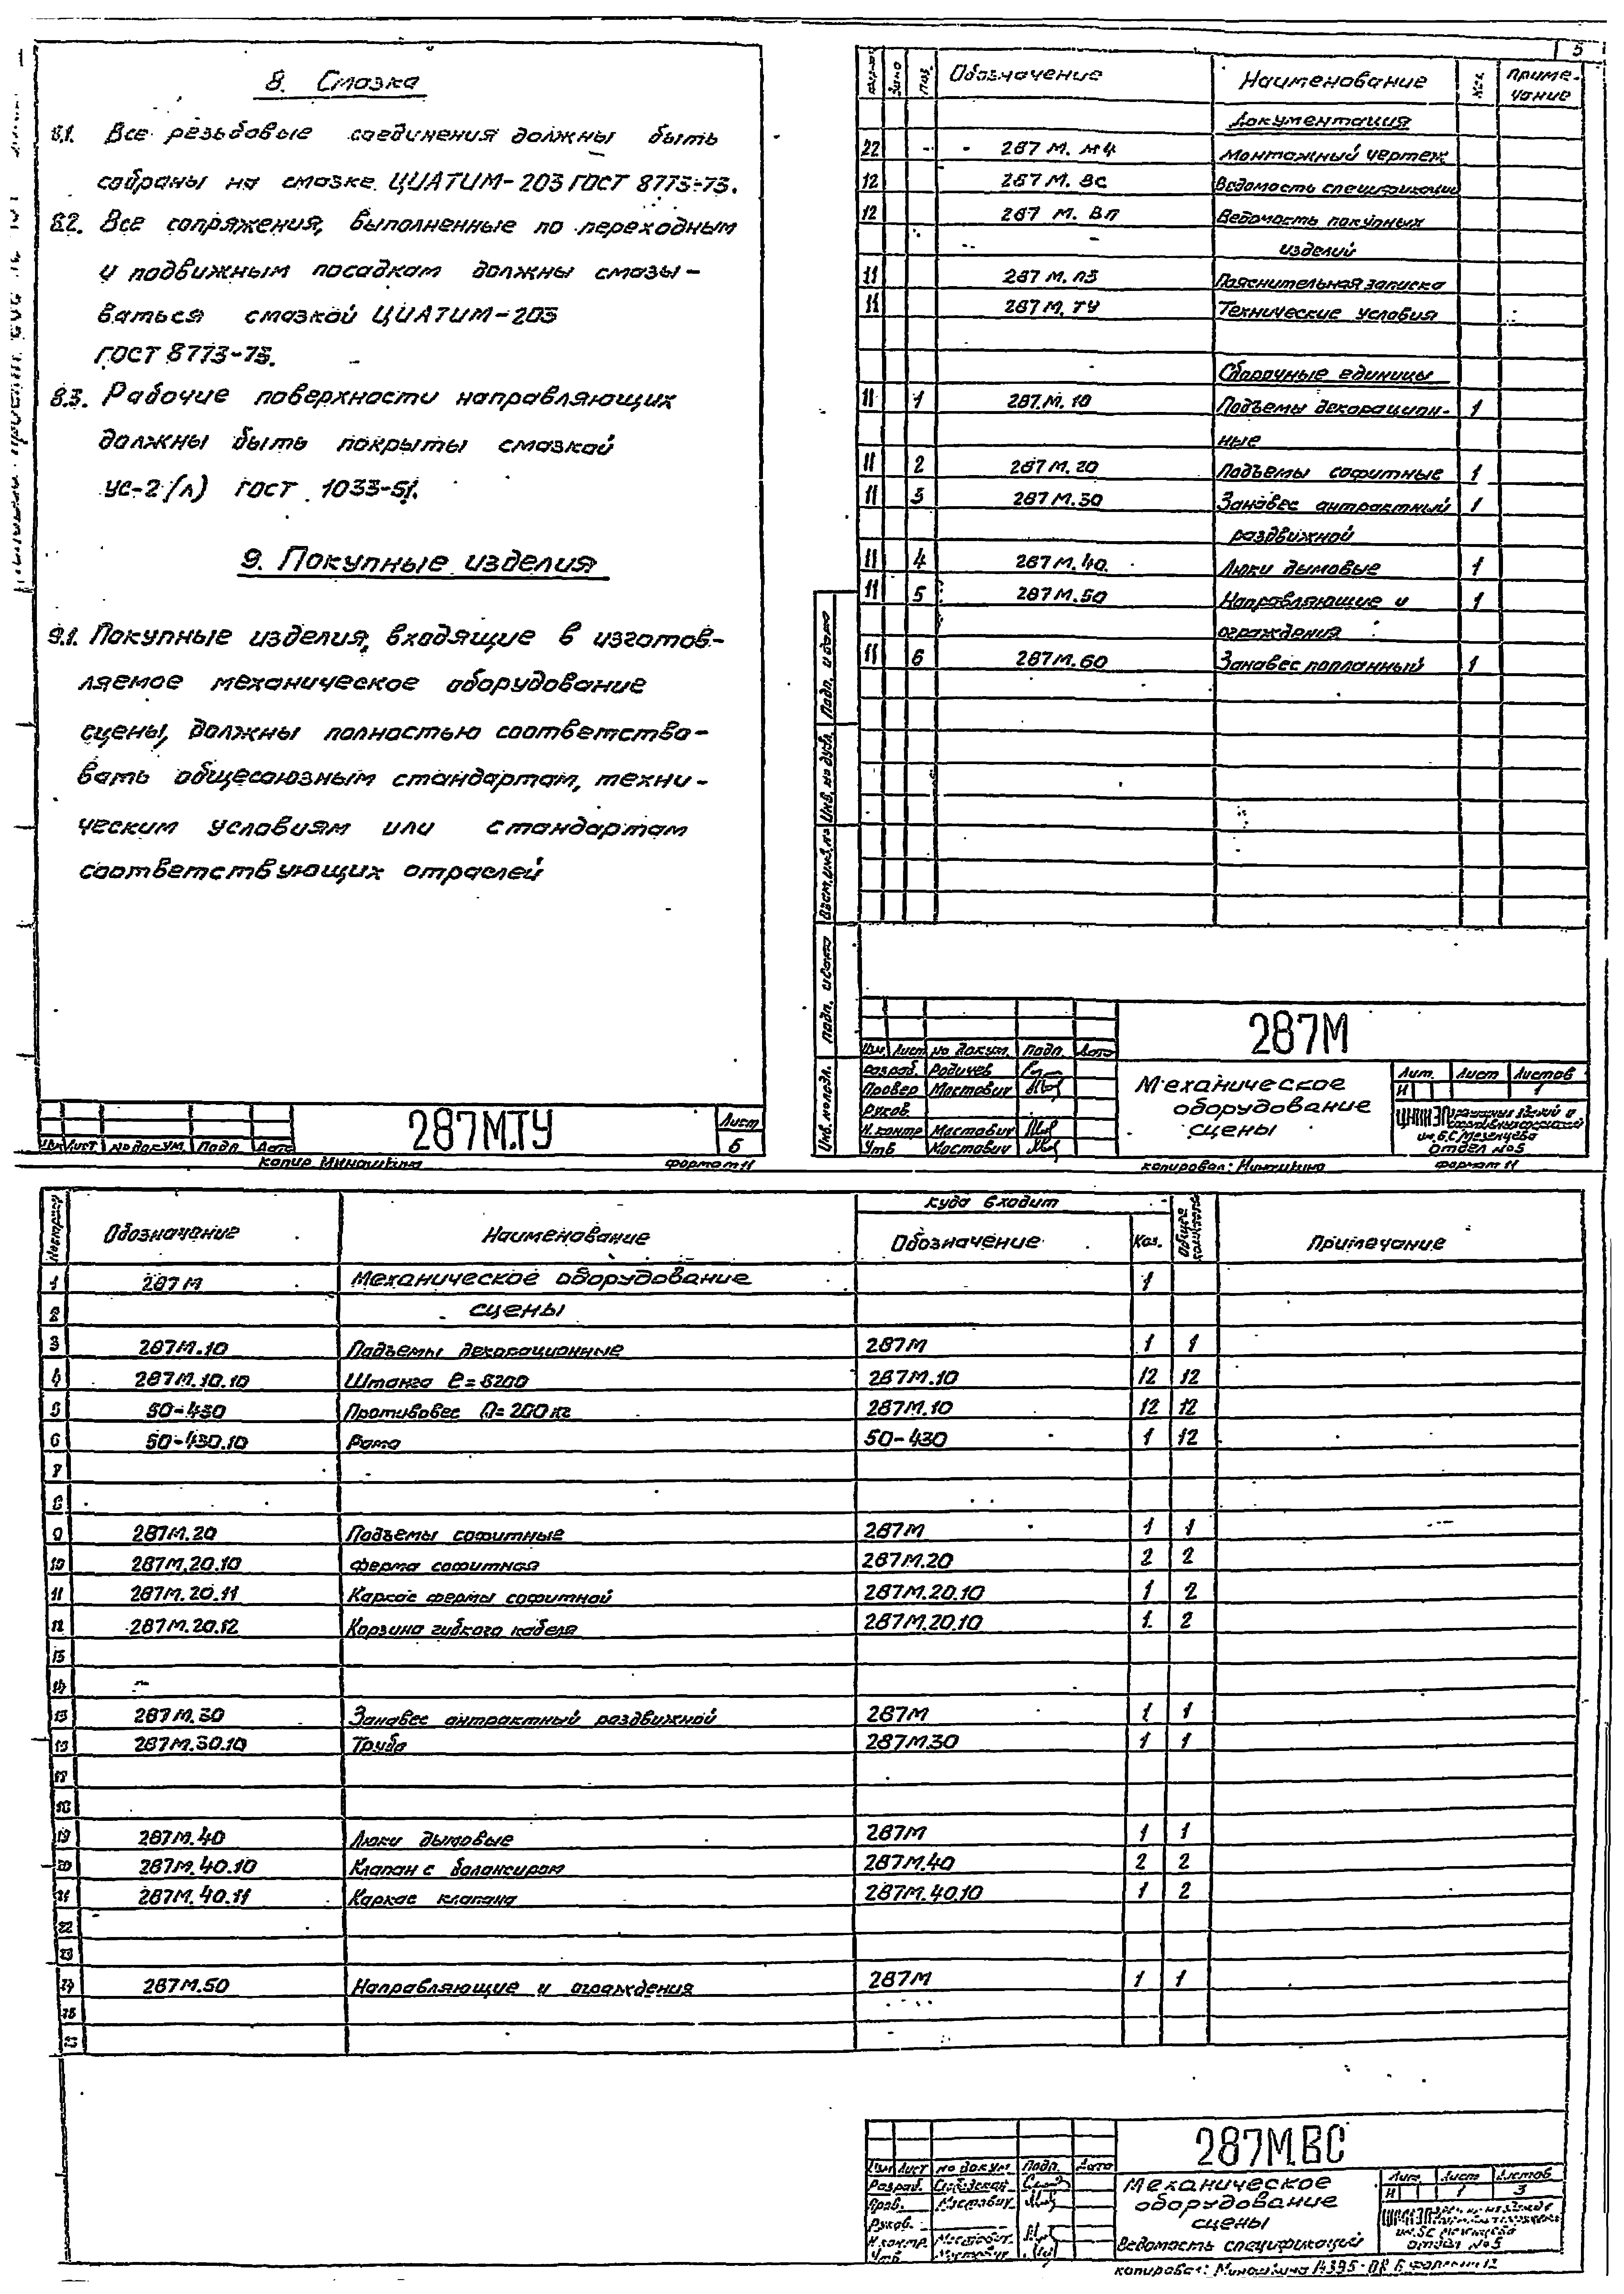 5
8. Смазка
8.1. Все резьбовые соединения должны быть
собраны на смазке ЦИАТИМ-203 ГОСТ 8773-73.
8.2. Все сопряжения, выполненные по переходным
и подвижным посадкам должны смазы-
ваться смазкой ЦИАТИМ-203
ГОСТ 8773-73.
8.3. Рабочие поверхности направляющих
должны быть покрыты смазкой
УС-2 (Л) ГОСТ 1033-51.
9. Покупные изделия
9.1. Покупные изделия, входящие в изготов-
ляемое механическое оборудование
сцены, должны полностью соответство-
вать общесоюзным стандартам, техни-
ческим условиям или стандартам
соответствующих отраслей
Изм Лист № докум. Подп Дата
287М.ТУ
Лист
6
копир Миношкина формат 11
Поз. Обозначение Наименование Кол. Приме-
чание
Документация
22 287 М. МЧ Монтажный чертеж
12 287 М. ВС Ведомость спецификаций
12 287 М. ВП Ведомость покупных
изделий
11 287 М. ПЗ Пояснительная записка
11 287 М. ТУ Технические условия
Сборочные единицы
11 1 287.М.10 Подъемы декорацион- 1
ные
11 2 287М.20 Подъемы софитные 1
11 3 287М.30 Занавес антрактный 1
раздвижной
11 4 287М.40. Люки дымовые 1
11 5 287М.50 Направляющие и 1
ограждения
11 6 287М.60 Занавес попланный 1
Инв. № подл. Подп. и дата Взам. инв. № Инв. № дубл. Подп. и дата
287М
Изм. Лист № докум. Подп. Дата
Разраб. Родичев
Провер Мостович
Руков.
Н. контр Мостович
Утв Мостович
Механическое
оборудование
сцены
Лит. Лист Листов
И 1
ЦНИИЭП
им. Б.С. Мезенцева
отдел №5
копировал: формат 11
Обозначение Наименование куда входит Общее количество Примечание
Обозначение Кол.
1 287М Механическое оборудование 1
2 сцены
3 287М.10 Подъемы декорационные 287М 1 1
4 287М.10.10 Штанга ℓ=8200 287М.10 12 12
5 50-430 Противовес Q=200кг 287М.10 12 12
6 50-430.10 Рама 50-430 1 12
7
8
9 287М.20 Подъемы софитные 287М 1 1
10 287М.20.10 Ферма софитная 287М.20 2 2
11 287М.20.11 Каркас фермы софитной 287М.20.10 1 2
12 287М.20.12 Корзина гибкого кабеля 287М.20.10 1 2
13
14
15 287М.30 Занавес антрактный раздвижной 287М 1 1
16 287М.30.10 Труба 287М.30 1 1
17
18
19 287М.40 Люки дымовые 287М 1 1
20 287М.40.10 Клапан с балансиром 287М.40 2 2
21 287М.40.11 Каркас клапана 287М.40.10 1 2
22
23
24 287М.50 Направляющие и ограждения 287М 1 1
25
26
287М.ВС
Изм Лист № докум Подп. Дата
Разраб.
Пров. Мостович
Руков.
Н. контр. Мостович
Утв Мостович
Механическое
оборудование
сцены
Ведомость спецификаций
Лит. Лист Листов
И 1 3
ЦНИИЭП
отдел №5
копировал: Миношкина 14395-08 6 формат 12